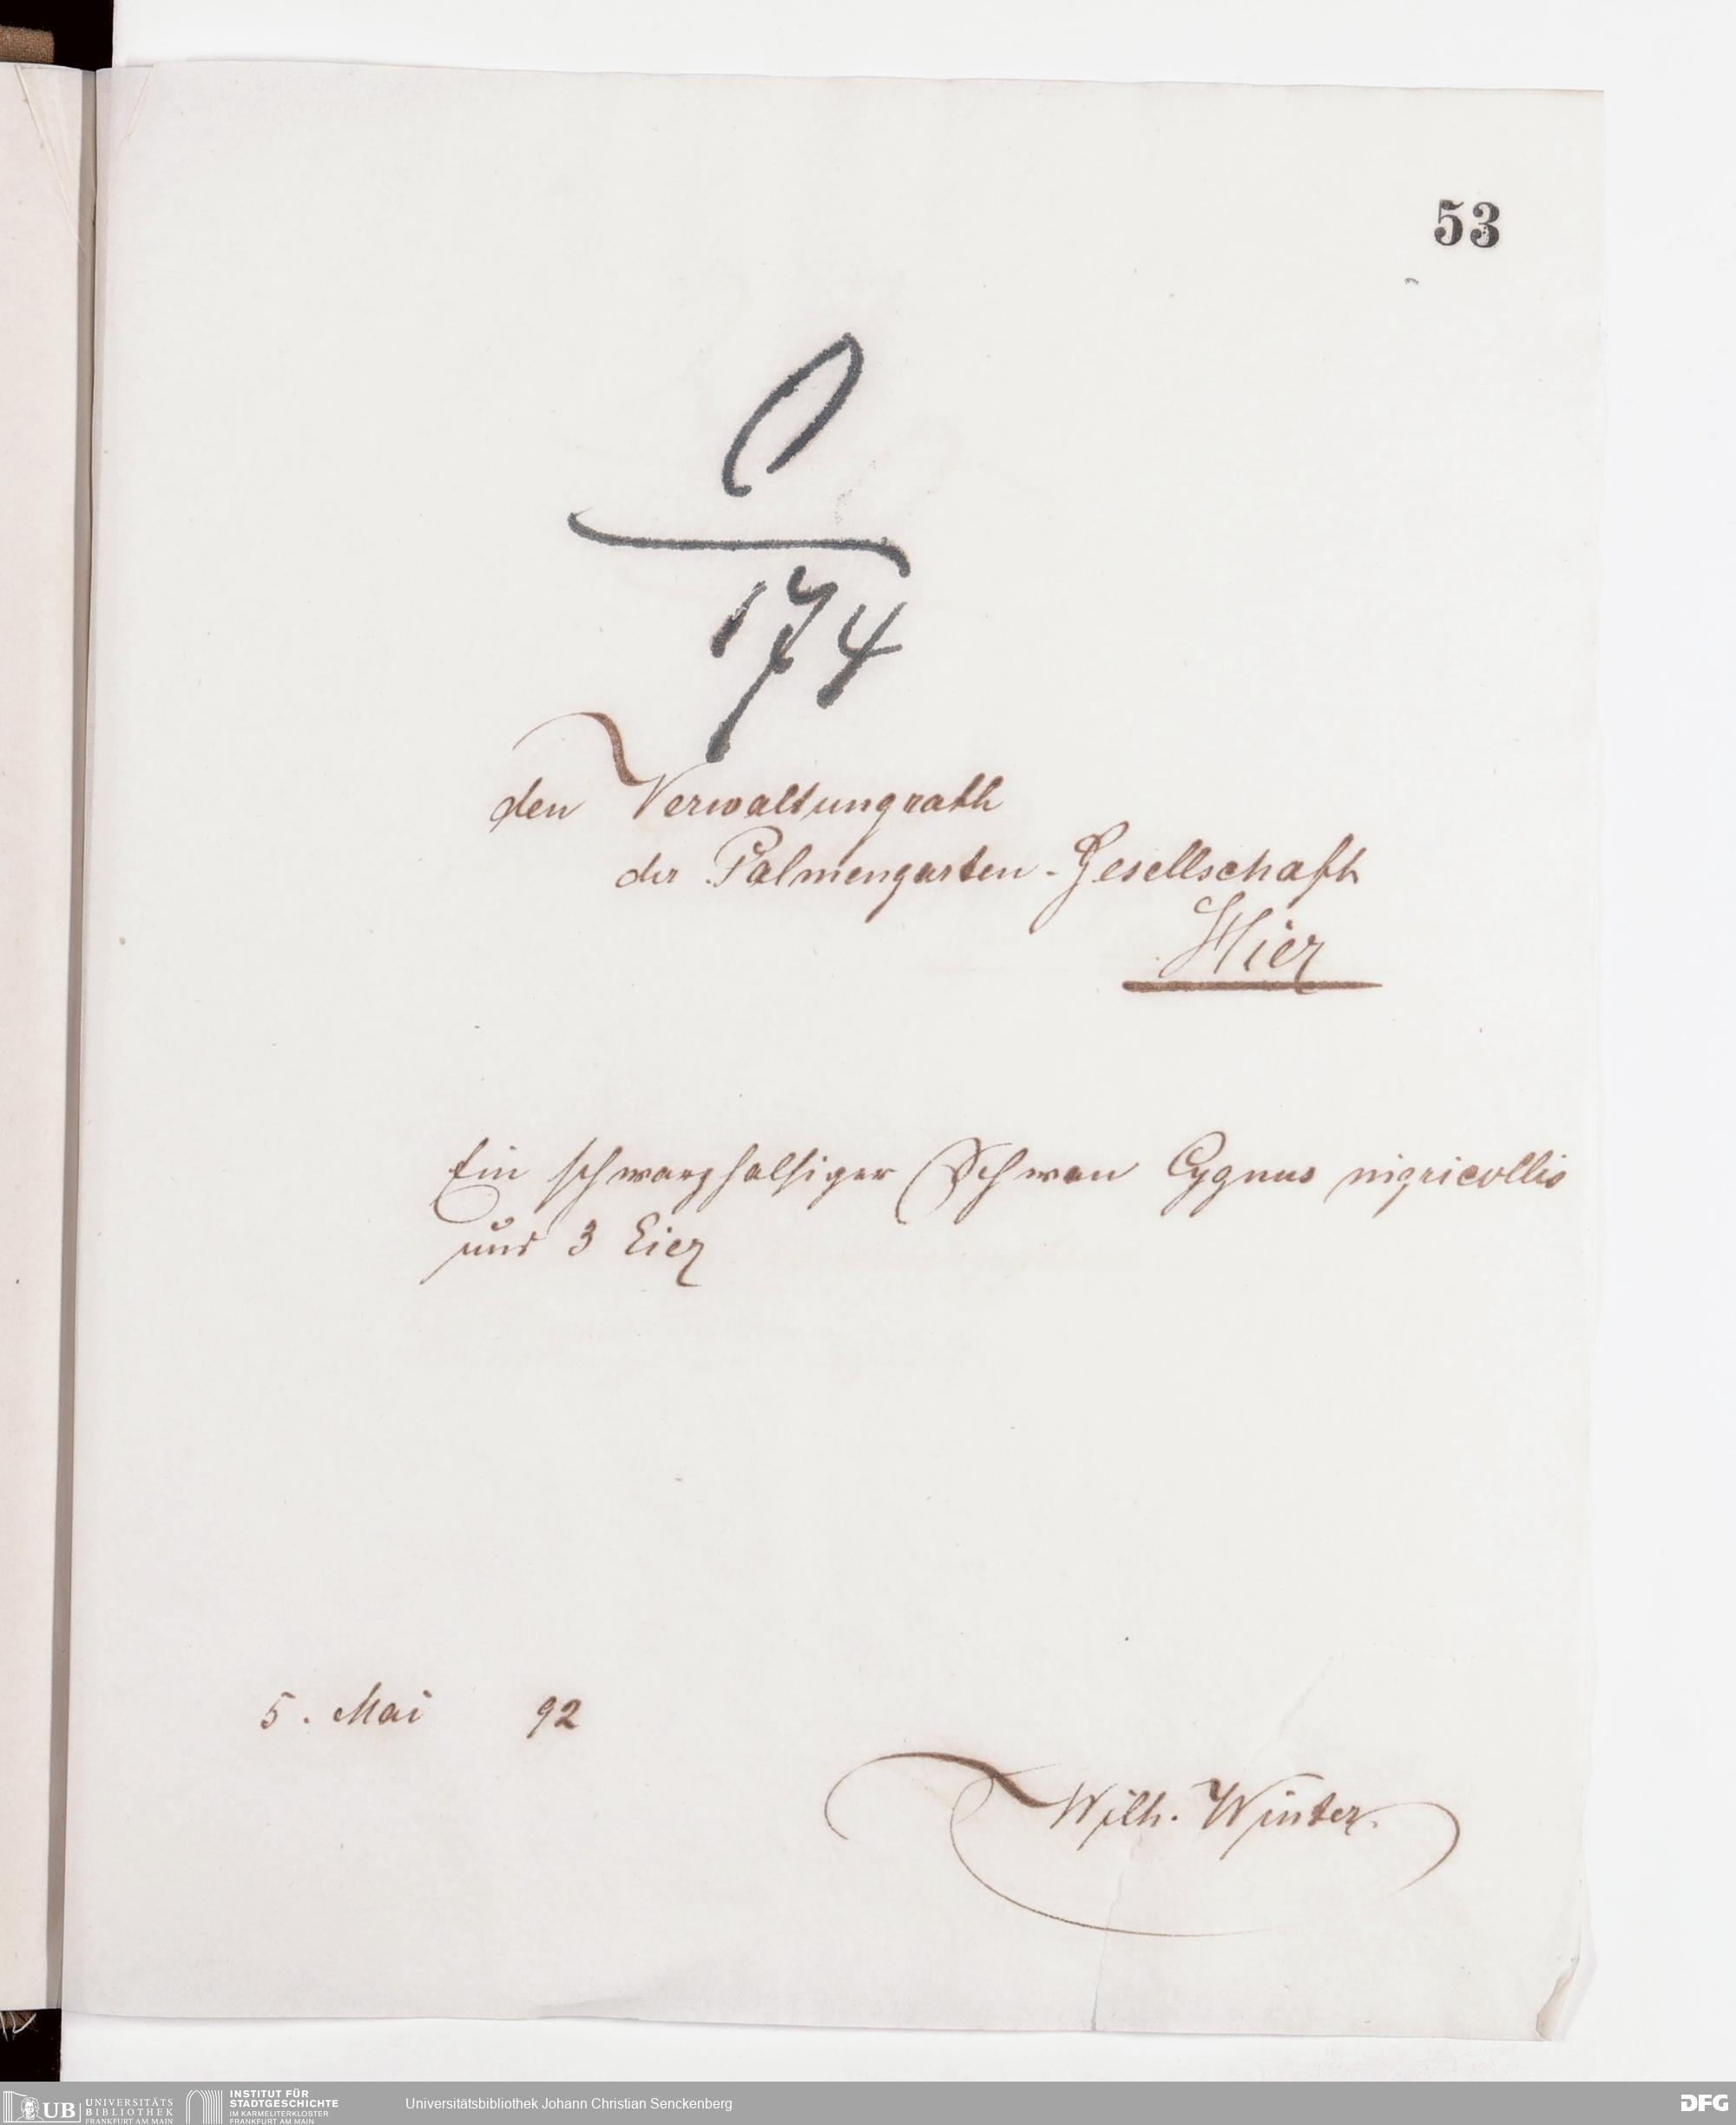 53
0
174
den Verwaltungrath
der Palmengarten-Gesellschaft
Hier
Ein schwarzhalsiger Schwan Cygnus nigricollis
und 3 Eier
5. Mai 92
Wilh. Winter.
UB UNIVERSITÄTS BIBLIOTHEK FRANKFURT AM MAIN
INSTITUT FÜR STADTGESCHICHTE IM KARMELITERKLOSTER FRANKFURT AM MAIN
Universitätsbibliothek Johann Christian Senckenberg
DFG